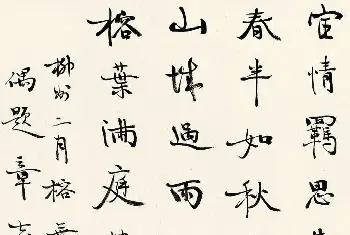 宦情羈思
春半如秋
山城過雨
榕葉滿庭
柳州二月榕葉
偶題章